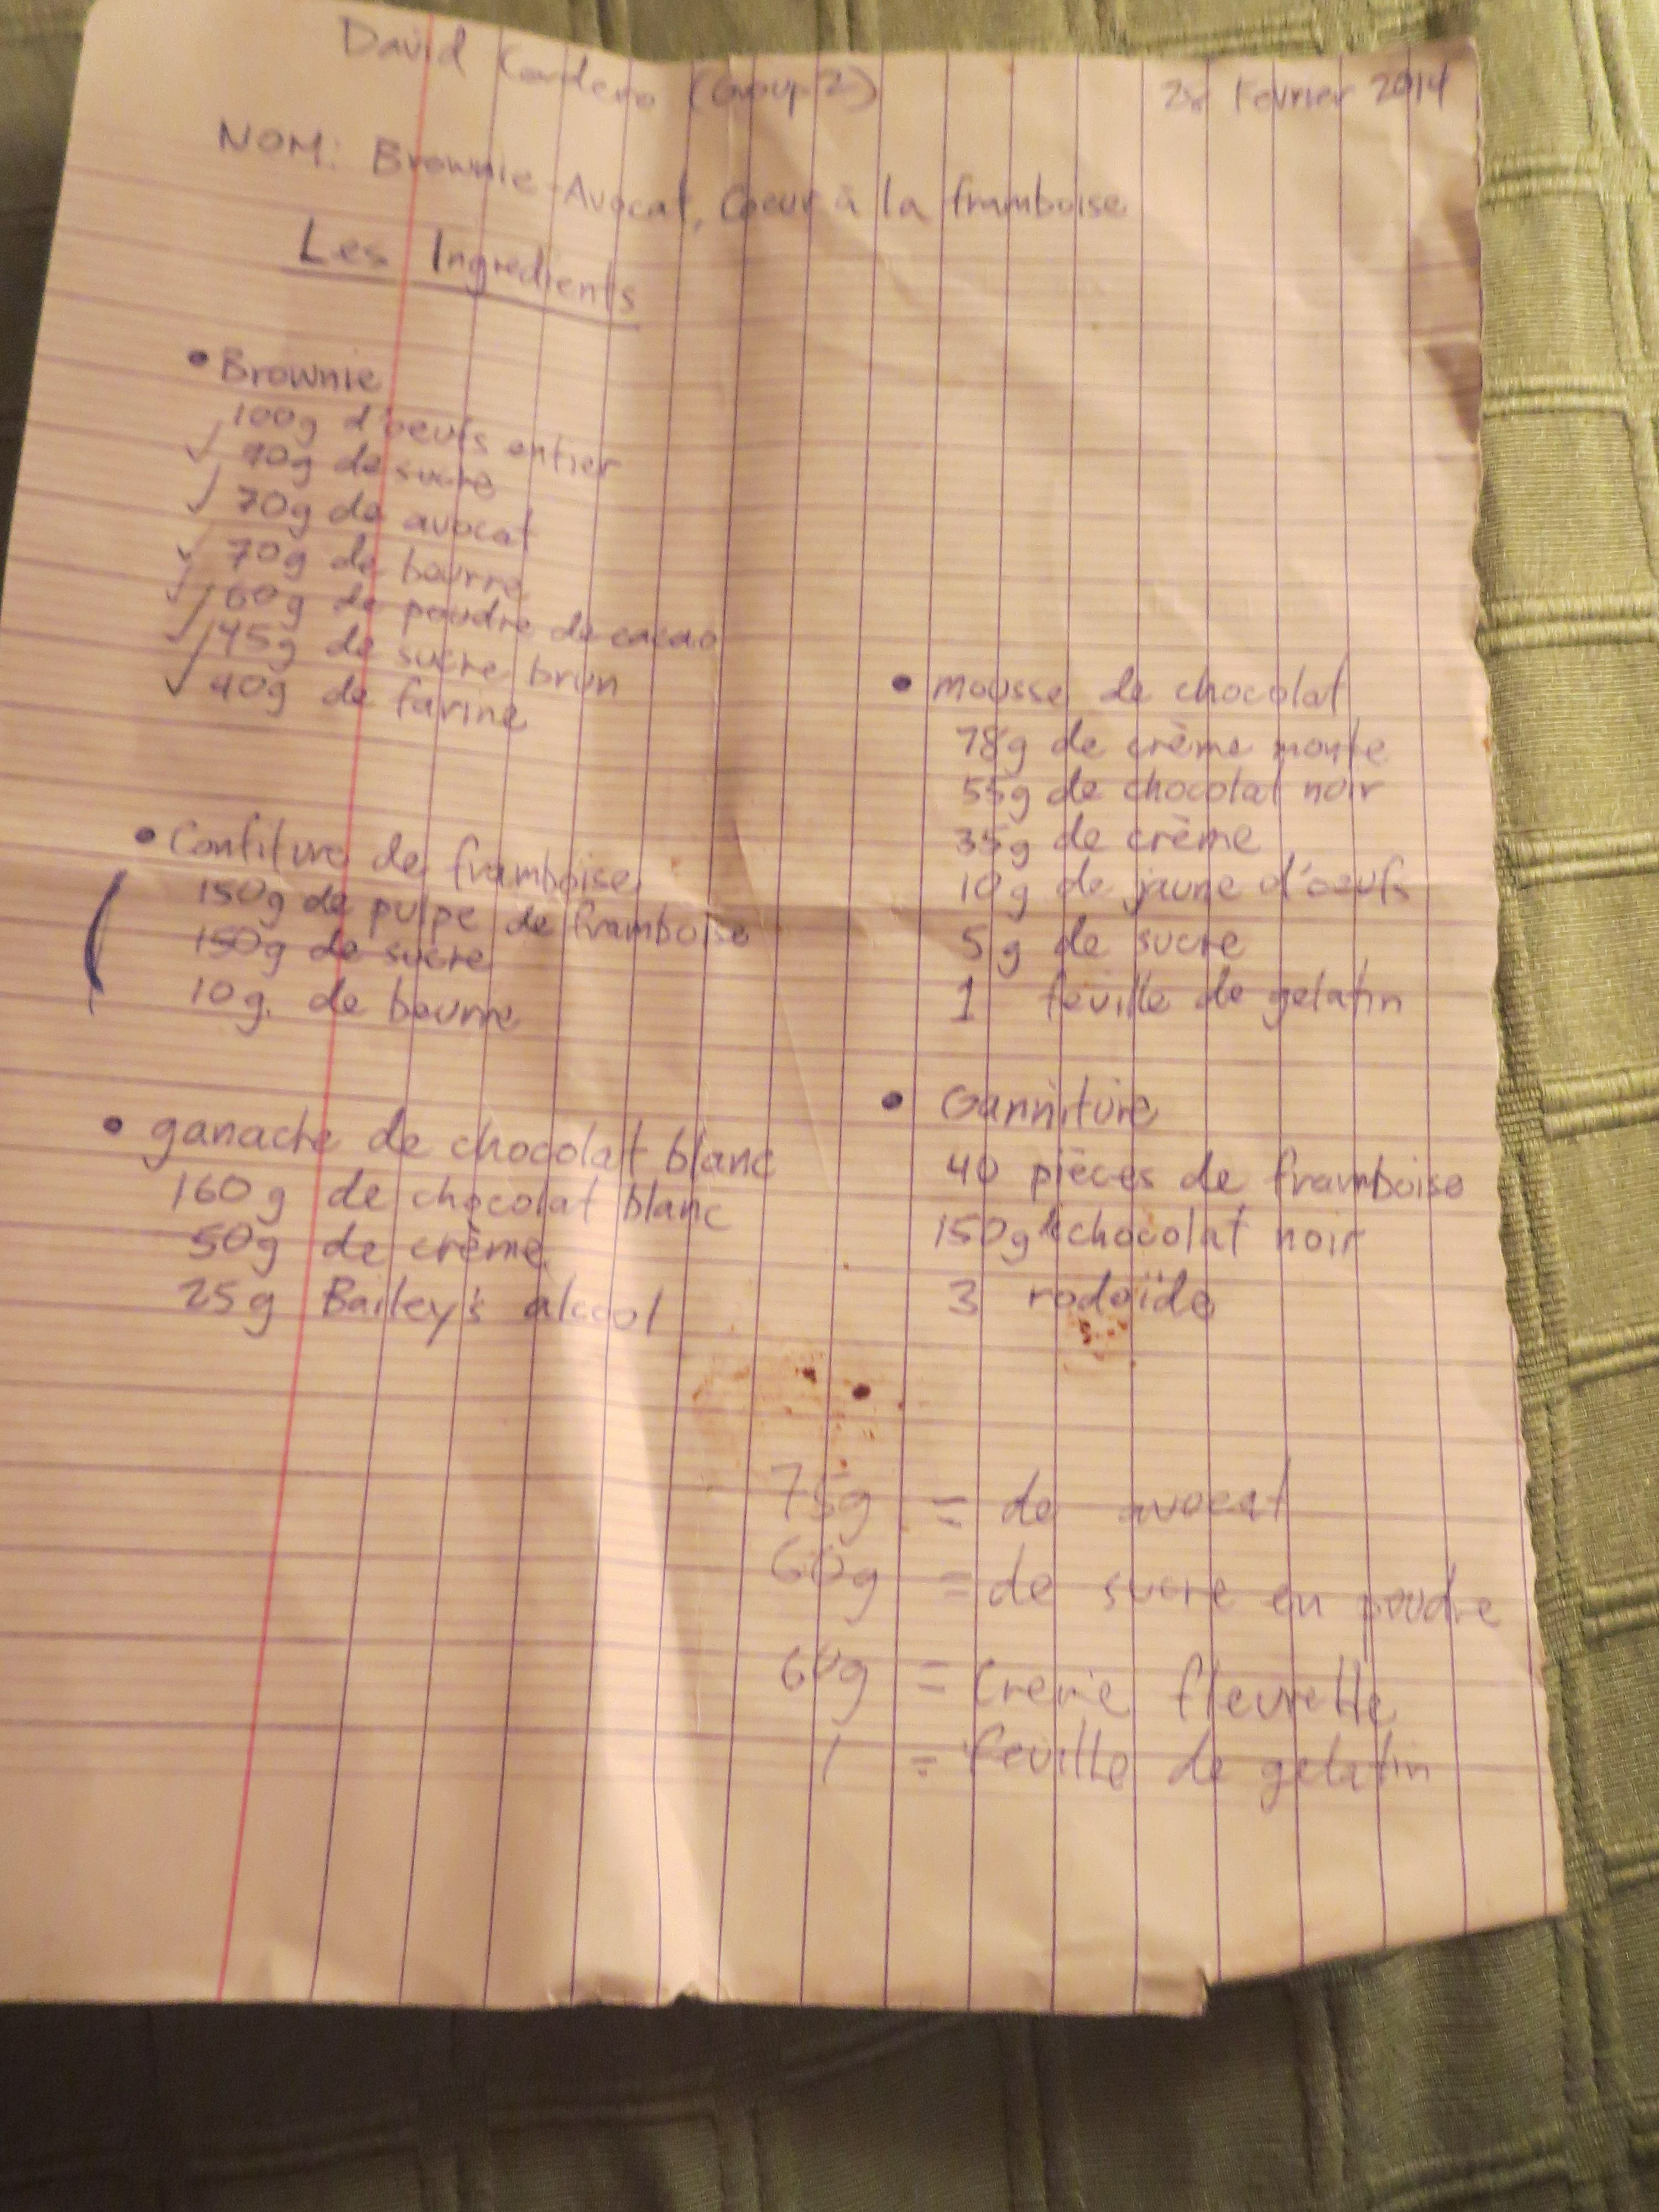 David Cordero (Group 2)
28 Fevrier 2014
NOM: Brownie-Avocat, Coeur à la framboise
Les Ingredients
• Brownie
100g d'oeufs entier
90g de sucre
70g de avocat
70g de beurre
60g de poudre de cacao
45g de sucre brun
40g de farine
• Confiture de framboise
150g de pulpe de framboise
150g de sucre
10g. de beurre
• ganache de chocolat blanc
160g de chocolat blanc
50g de crème
25g Bailey's alcool
• mousse de chocolat
78g de crème monte
55g de chocolat noir
35g de crème
10g de jaune d'oeufs
5g de sucre
1 feuille de gelatin
• Garniture
40 pièces de framboise
150g de chocolat noir
3 rodoïde
75g = de avocat
60g = de sucre en poudre
60g = Creme fleurette
1 = feuille de gelatin